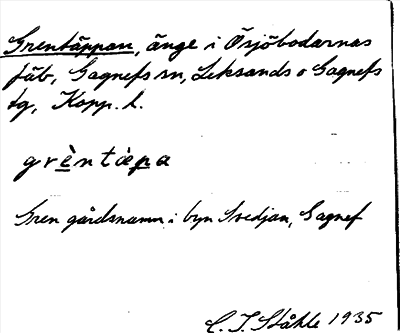 Grentäppan, änge i Ösjöbodarnas
fäb, Gagnefs sn, Leksands o Gagnefs
tg, Kopp. l.
grèntäpa
Gren gårdsnamn i byn Svedjan, Gagnef
C. I. Ståhle 1935